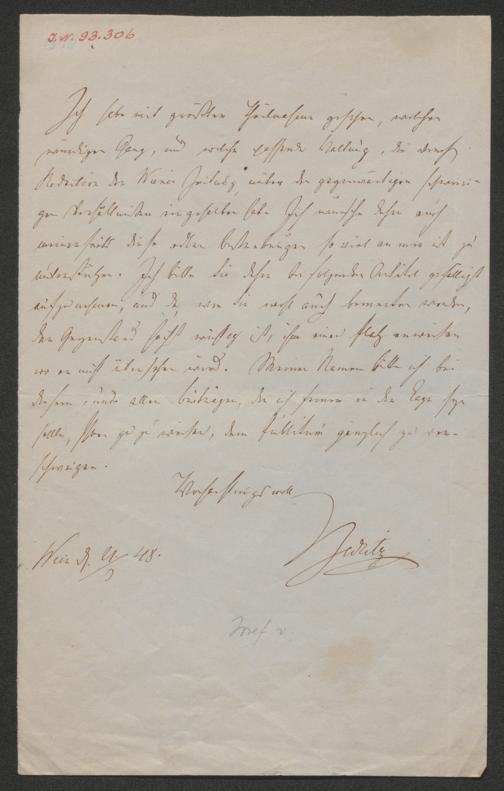 I.N. 93.306
Ich habe mit größter Theilnahme gesehen, welchen
würdigen Gang, und welche passende Haltung, die
Redaktion der Wiener Zeitung unter den gegenwärtigen schwieri-
gen Verhältnissen eingehalten habe. Ich wünsche daher auch
meinerseits diese edlen Bestrebungen so viel an mir ist zu
unterstützen. Ich bitte Sie daher beifolgenden Artikel gefälligst
aufzunehmen, und da, wie Sie wohl auch bemerken werden,
der Gegenstand höchst wichtig ist, ihm einen Platz anweisen
wo er nicht übersehen wird. Meinen Namen bitte ich bei
diesem, und allen Beiträgen, die ich ferner in der Lage seyn
sollte, Ihnen zu, dem Publikum gänzlich zu ver-
schweigen.
Hochachtungsvoll
Zedlitz
Wien d. 48.
Josef v.